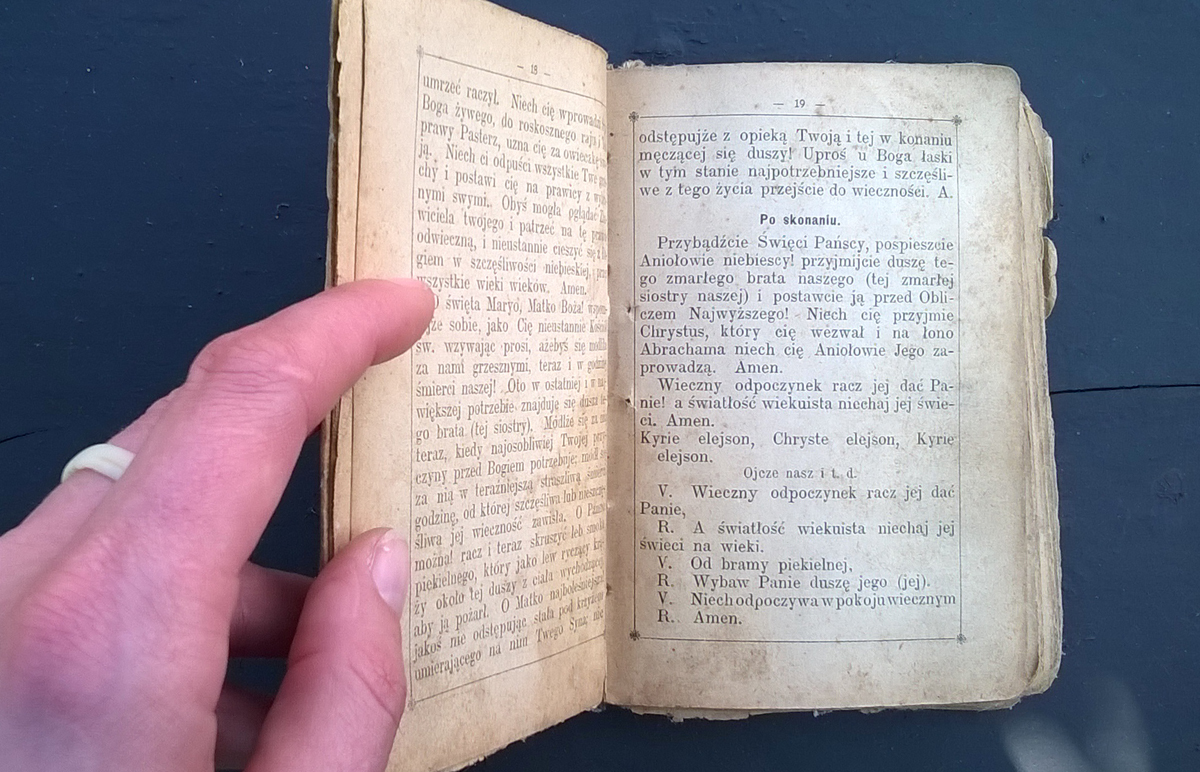 — 18 —
umrzeć raczył. Niech cię wprowadzi
Boga żywego, do roskosznego raju i
prawy Pasterz, uzna cię za owieczkę
ją. Niech ci odpuści wszystkie Twe
chy i postawi cię na prawicy z
nymi swymi. Obyś mogła oglądać
wiciela twojego i patrzeć na tę
odwieczną, i nieustannie cieszyć się z
giem w szczęśliwości niebieskiej, przez
wszystkie wieki wieków. Amen.
święta Maryo, Matko Boża!
sobie, jako Cię nieustannie Kościół
św. wzywając prosi, ażebyś się modliła
za nami grzesznymi, teraz i w godzinę
śmierci naszej! Oto w ostatniej i w
większej potrzebie znajduje się dusza
go brata (tej siostry). Módlże się za nią
teraz, kiedy najosobliwiej Twojej
czyny przed Bogiem potrzebuje; módl
za nią w teraźniejszą straszliwą
godzinę, od której szczęśliwa lub
śliwa jej wieczność zawisła. O Panno
można! racz i teraz skruszyć łeb smoka
piekielnego, który jako lew ryczący
ży około tej duszy z ciała wychodzącej
aby ją pożarł. O Matko najboleśniejsza
jakoś nie odstępując stała pod krzyżem
umierającego na nim Twego Syna, nie
— 19 —
odstępujże z opieką Twoją i tej w konaniu
męczącej się duszy! Uproś u Boga łaski
w tym stanie najpotrzebniejsze i szczęśli-
we z tego życia przejście do wieczności. A.
Po skonaniu.
Przybądźcie Święci Pańscy, pospieszcie
Aniołowie niebiescy! przyjmijcie duszę te-
go zmarłego brata naszego (tej zmarłej
siostry naszej) i postawcie ją przed Obli-
czem Najwyższego! Niech cię przyjmie
Chrystus, który cię wezwał i na łono
Abrachama niech cię Aniołowie Jego za-
prowadzą. Amen.
Wieczny odpoczynek racz jej dać Pa-
nie! a światłość wiekuista niechaj jej świe-
ci. Amen.
Kyrie elejson, Chryste elejson, Kyrie
elejson.
Ojcze nasz i t. d.
V. Wieczny odpoczynek racz jej dać
Panie,
R. A światłość wiekuista niechaj jej
świeci na wieki.
V. Od bramy piekielnej,
R. Wybaw Panie duszę jego (jej).
V. Niech odpoczywa w pokoju wiecznym
R. Amen.